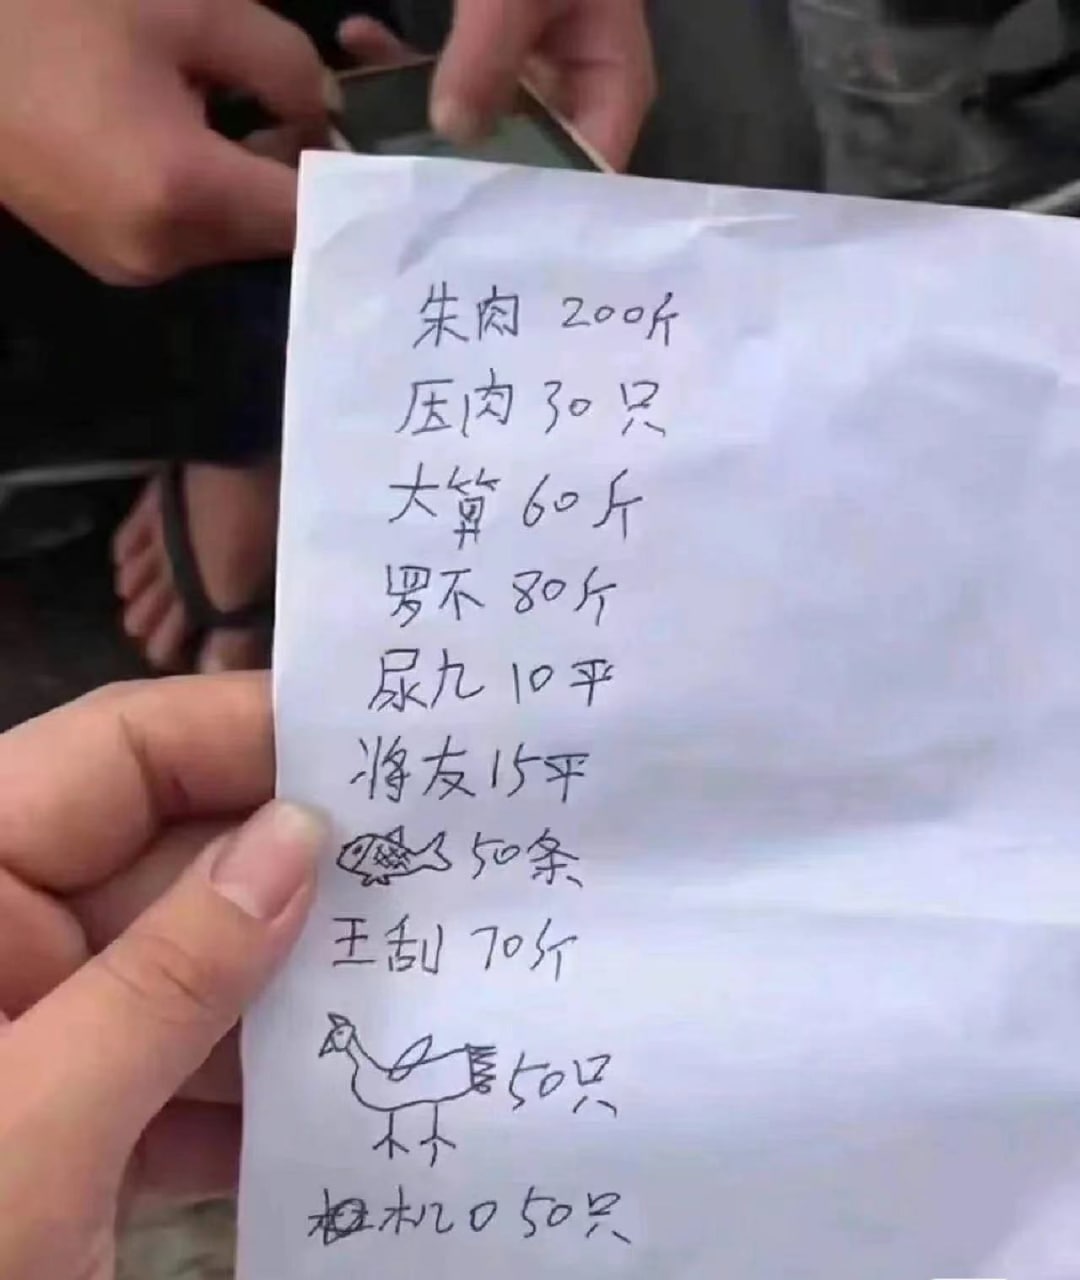 朱肉 200斤
压肉 30只
大算 60斤
罗不 80斤
尿九 10平
将友 15平
50条
王刮 70斤
50只
机0 50只